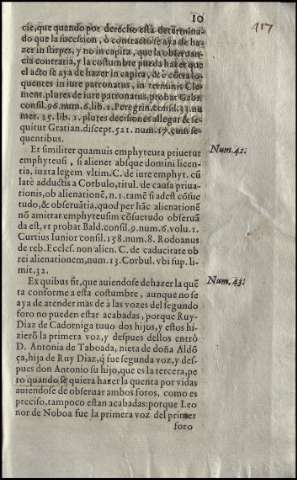 10
417
cie, que quando por derecho està determina-
do que la succesion, ò contracto se aya de ha-
zer in stirpes, y no in capita, que la obseruan-
cia contraria, y la costumbre pueda hazer que
el acto se aya de hazer in capita, & è côtra lo-
quentes in iure patronatus, in terminis Cle-
ment. plures de iure patronatus, probat Gabr.
consil. 96. num. 6. lib. 1. Peregrin. consil. 33. nu
mer. 15. lib. 1. plures decisiones allegat & se-
quitur Gratian. discept. 521. num. 17. cum se-
quentibus.
Et similiter quamuis emphyteuta priuetur
emphyteusi, si alienet absque domini licen-
tia, iuxta legem vltim. C. de iure emphyt. cû
latè adductis a Corbulo, titul. de causa priua-
tionis, ob alienationê, n. 1. tamê si adest côsue
tudo, & obseruãtia, quod per hãc alienationê
nô amittat emphyteusim côsuetudo obseruã
da est, vt probat Bald. consil. 9. num. 6. volu. 1.
Curtius Iunior consil. 158. num. 8. Rodoanus
de reb. Eccles. non alien. C. de caducitate ob
rei alienationem, num. 13. Corbul. vbi sup. li-
mit. 32.
Num. 42.
Ex quibus fit, que auiendose de hazer la quê
ta conforme a esta costumbre, aunque no se
aya de atender mas de a las vozes del segundo
foro no pueden estar acabadas, porque Ruy-
Diaz de Cadorniga tuuo dos hijos, y estos hi-
zierõ la primera voz, y despues dellos entrò
D. Antonia de Taboada, nieta de doña Aldõ
ça, hija de Ruy Diaz, q̃ fue segunda voz, y des-
pues don Antonio su hijo, que es la tercera, pe
ro quando se quiera hazer la quenta por vidas
auiendose de obseruar ambos foros, como es
preciso, tampoco estan acabadas: porque Leo
nor de Noboa fue la primera voz del primer
foro
Num. 43.